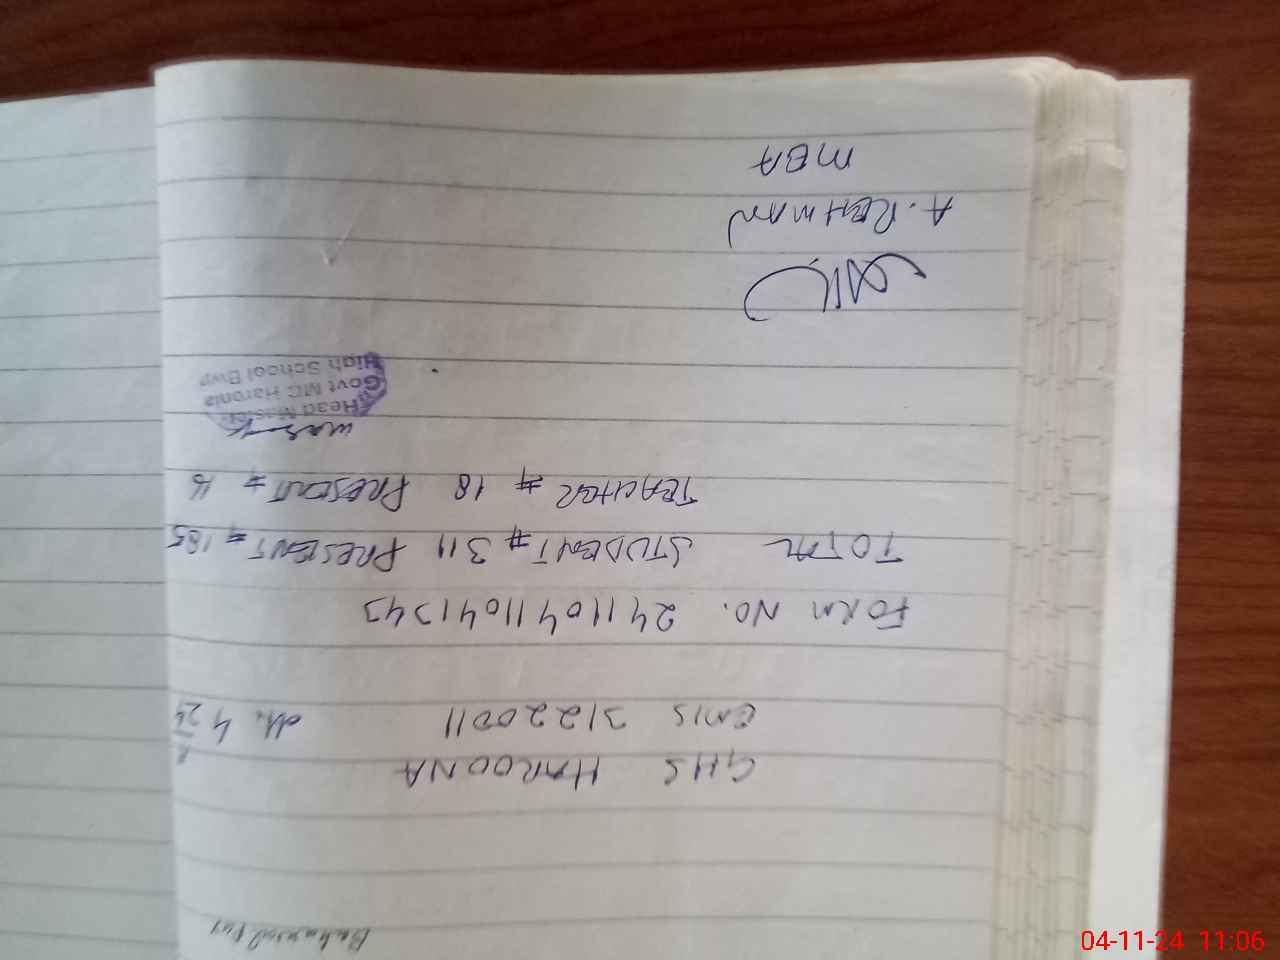 Bahawalpur
GHS HAROONA
EMIS 31220011 dt. 4 11/24
FORM NO. 24110411041343
TOTAL STUDENT # 311 PRESENT # 185
TEACHER # 18 PRESENT # 16
Head Master
Govt MC Haronia
High School Bwp
A. REHMAN
MBA
04-11-24 11:06